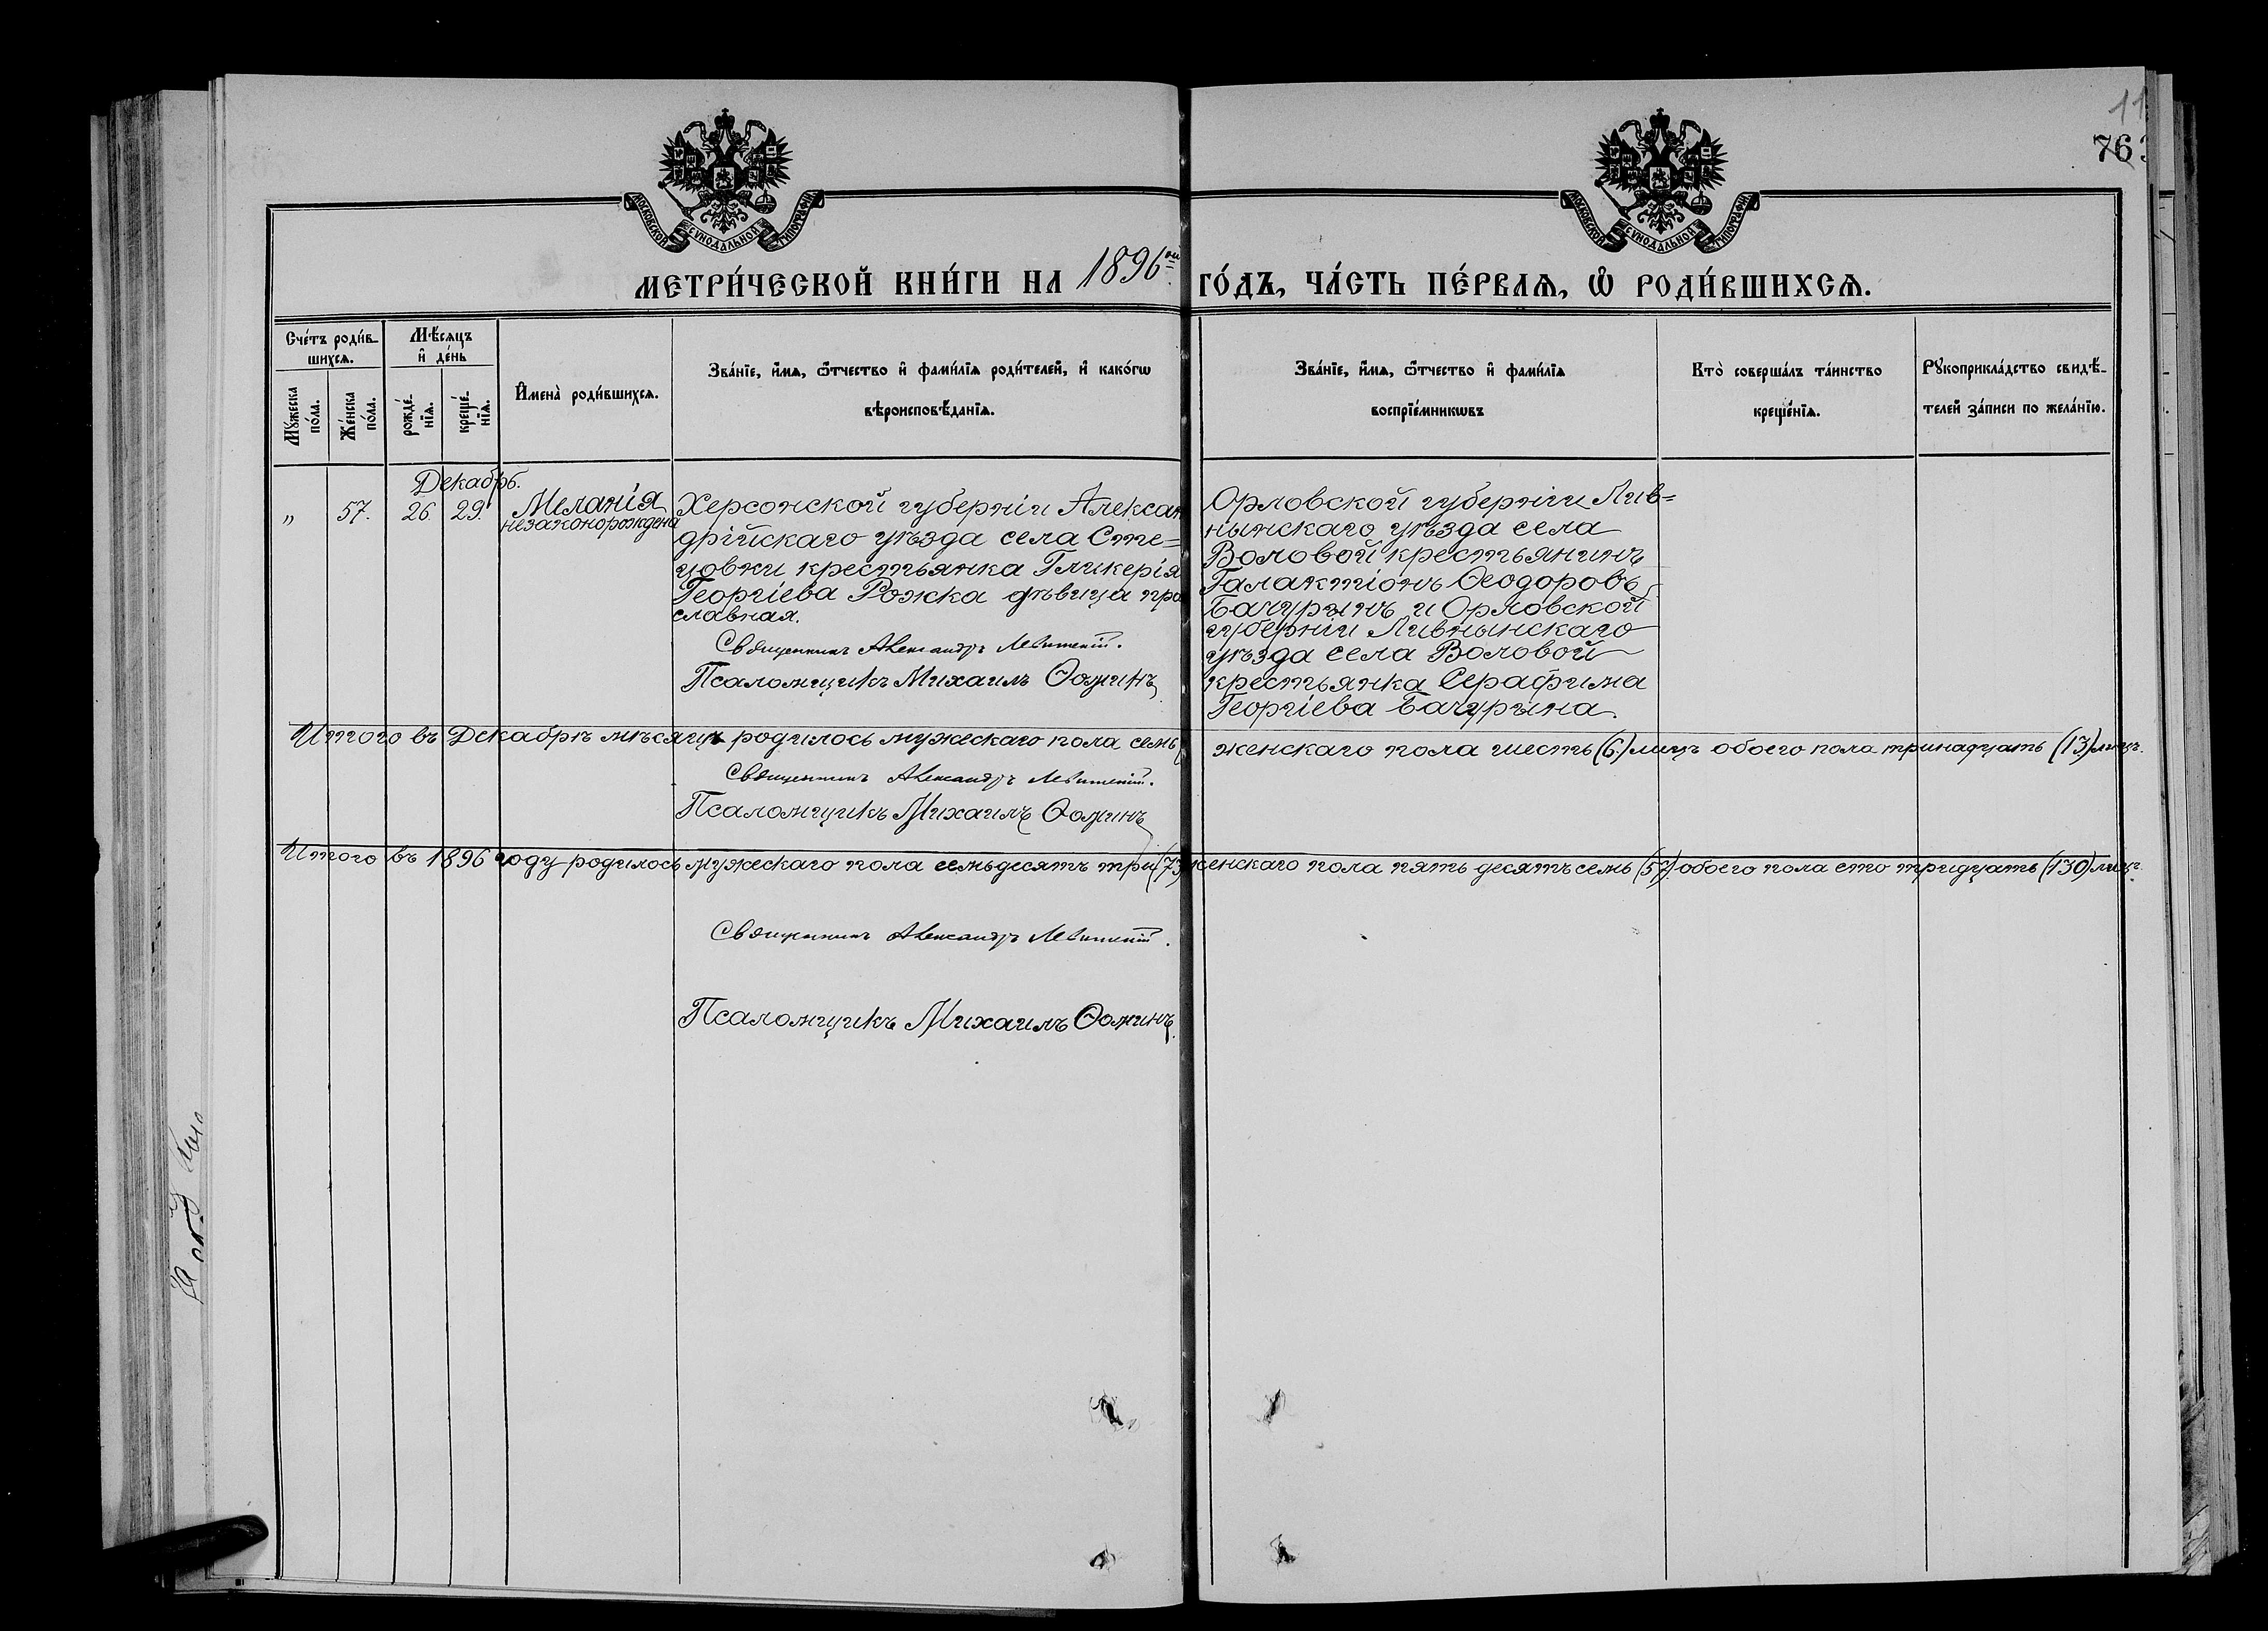 11
763
МОСКОВСКОЙ СУНОДАЛЬНОЙ ТИПОГРАФІИ
МОСКОВСКОЙ СУНОДАЛЬНОЙ ТИПОГРАФІИ
МЕТРИ́ЧЕСКОЙ КНИ́ГИ НА 1896ой ГО́ДЪ, ЧА́СТЬ ПЕ́РВАѦ, Ѽ РОДИ́ВШИХСѦ.
Сче́тъ роди́в-
шихсѧ.
Мꙋжеска по́ла.
Же́нска по́ла.
Мѣ́сѧцъ
и҆ де́нь
рожде́-
нїѧ.
креще́-
нїѧ.
И҆мена̀ роди́вшихсѧ.
Зва́нїе, и҆́мѧ, ѻ҆́тчество и҆ фами́лїѧ роди́телей, и҆ како́гѡ
вѣроисповѣ́данїѧ.
Зва́нїе, и҆́мѧ, ѻ҆́тчество и҆ фами́лїѧ
воспрїе́мникѡвъ
Кто̀ соверша́лъ та́инство
креще́нїѧ.
Рꙋкоприкла́дство свидѣ́-
телей за́писи по жела́нїю.
Декабрь.
„ 57. 26. 29. Меланія
незаконорождена
Херсонской губерніи Алексан
дрійскаго уѣзда села Сте=
цовки крестьянка Гликерія
Георгіева Рожка дѣвица пра
славная.
Священникъ Александръ Левитскій.
Псаломщикъ Михаилъ Ѳоминъ
Орловской губерніи Лив=
нынскаго уѣзда села
Воловой крестьянинъ
Галактіонъ Ѳеодоровъ
Бачуринъ и Орловской
губерніи Ливнынскаго
уѣзда села Воловой
крестьянка Серафима
Георгіева Бачурина.
Итого въ Декабрѣ мѣсяцѣ родилось мужескаго пола семь женскаго пола шесть (6) лицъ обоего пола тринадцать (13) лицъ.
Священникъ Александръ Левитскій.
Псаломщикъ Михаилъ Ѳоминъ
Итого въ 1896 году родилось мужескаго пола семьдесятъ три (73) женскаго пола пять десятъ семь (57) обоего пола сто тридцать (130) лицъ.
Священникъ Александръ Левитскій.
Псаломщикъ Михаилъ Ѳоминъ.